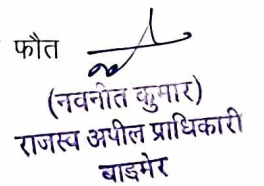 फौत
(नवनीत कुमार)
राजस्व अपील प्राधिकारी
बाड़मेर